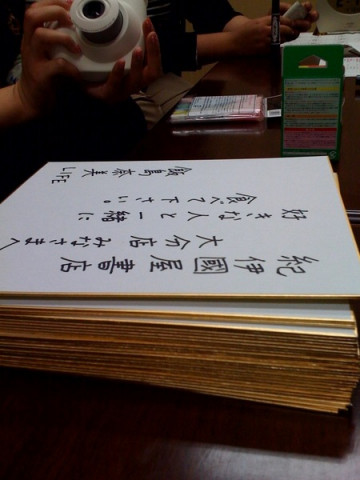 紀伊國屋書店
大分店みなさまへ
好きな人と一緒に
食べて下さい。
飯島奈美
LIFE